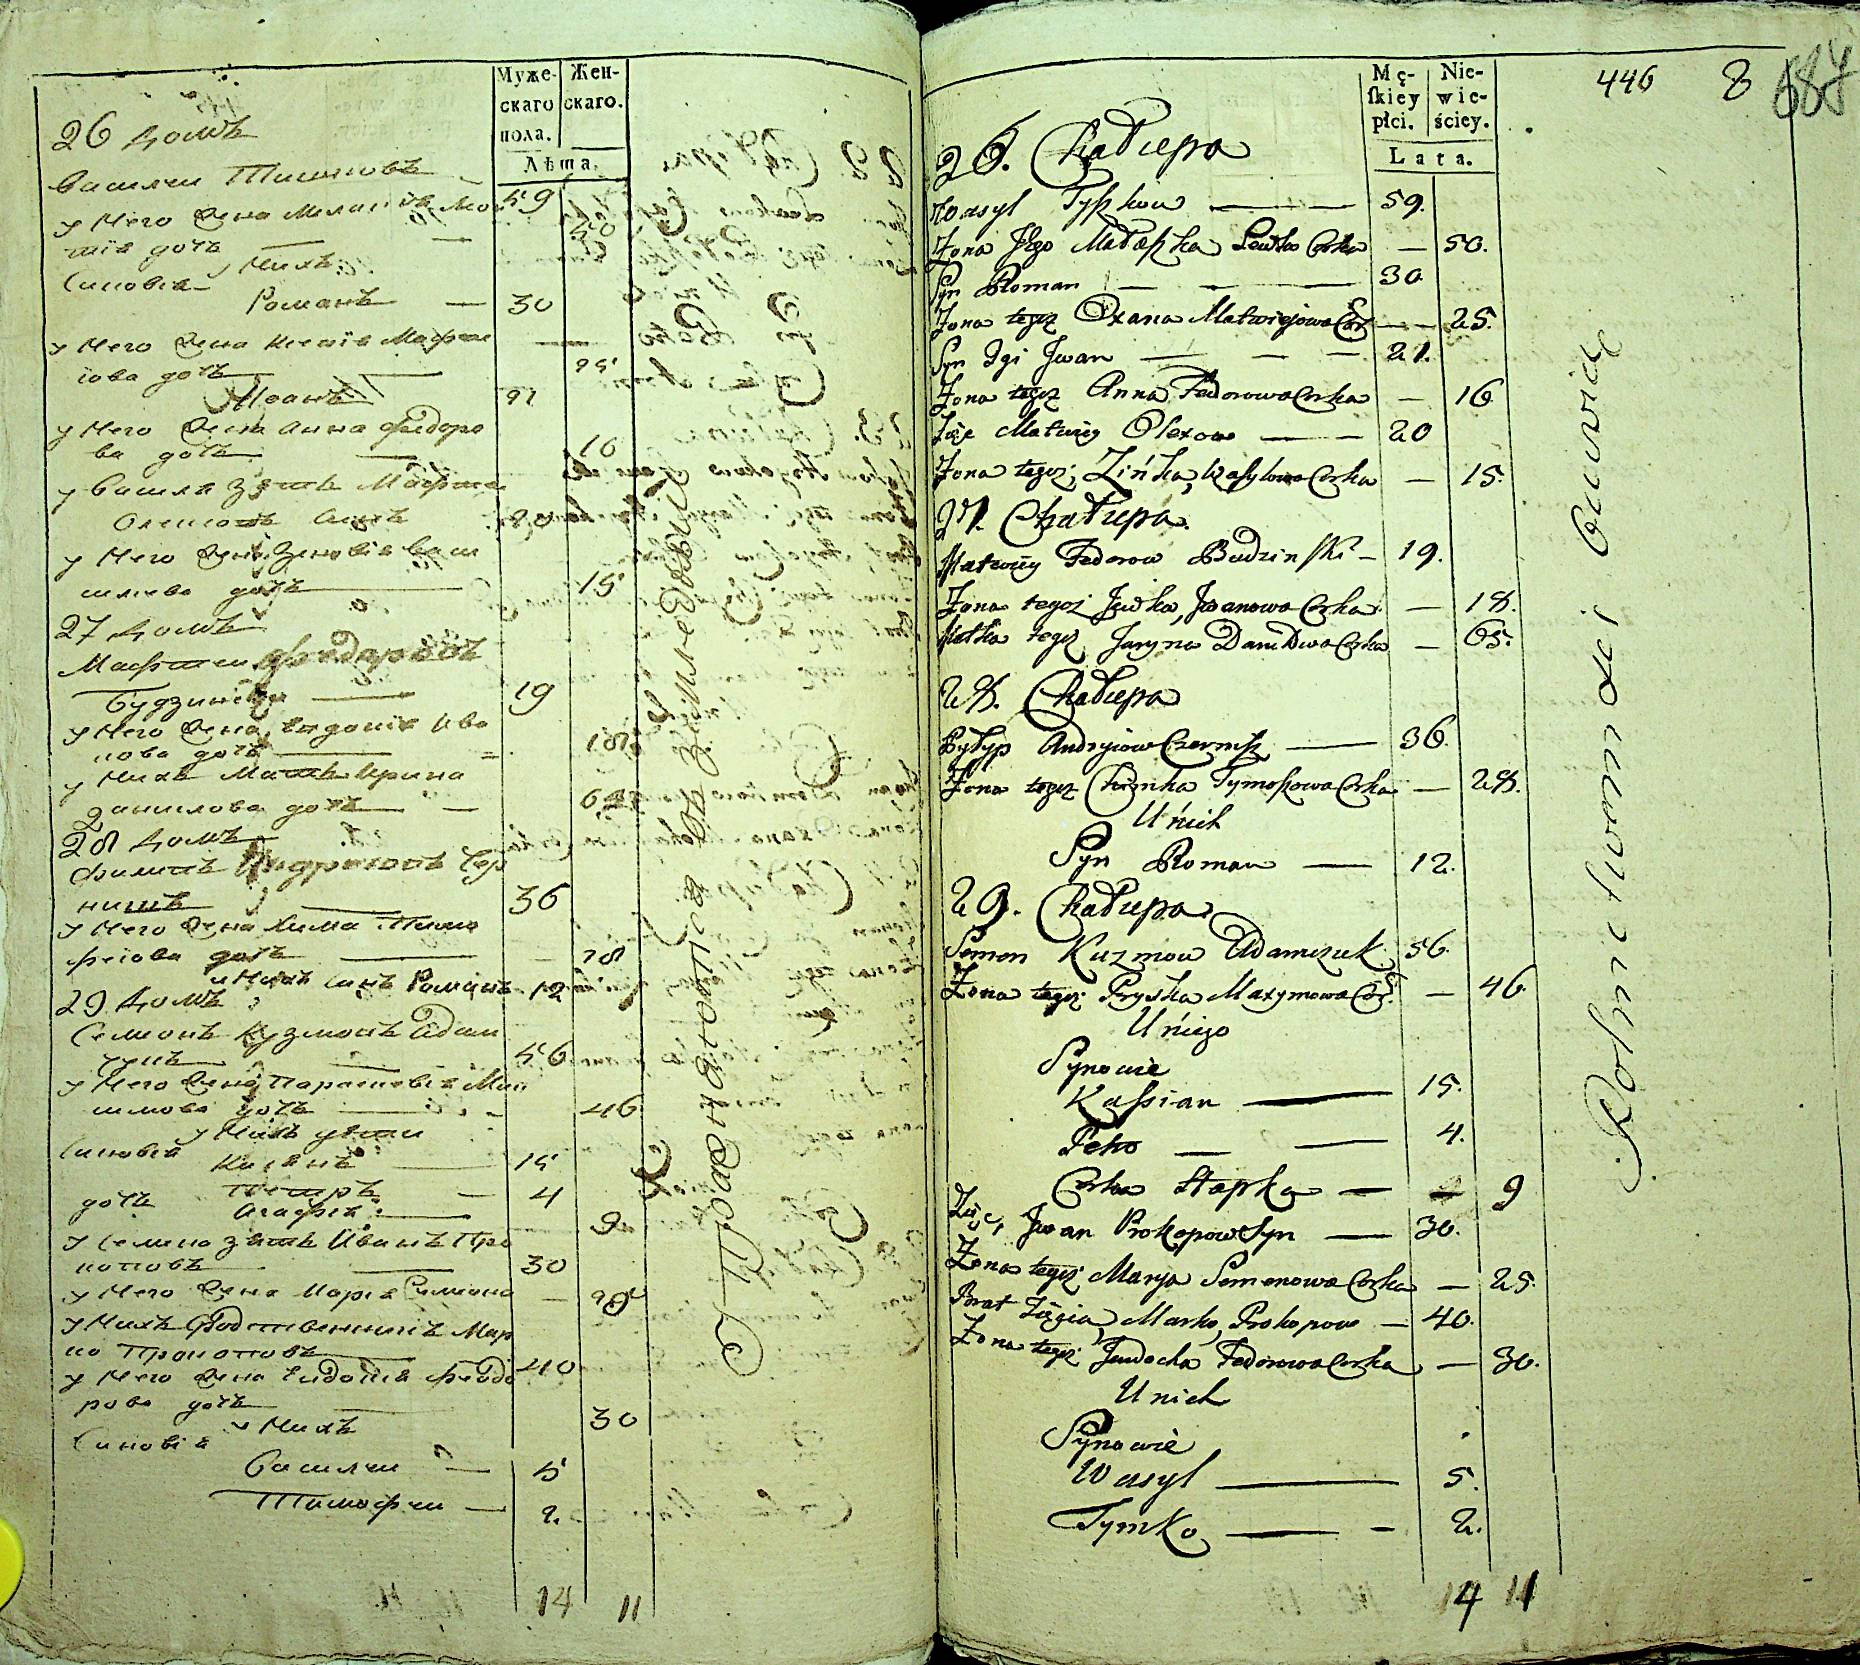 Муже-
скаго
пола.
Жен-
скаго.
Лѣта.
26 домъ
Василей Тишковъ — 59
у него жена Мелания Лео 50
тиева дочь
у нихъ
Синовья
Романъ — 30
у него жена Ксения Матфее
іова дочь — 25
Иванъ 21
у него жена Анна Федоро
ва дочь 16
у Василя зять Матфей
Олексовъ синъ 20
у него жена Зиновія Васи
лиева дочь 15
27 домъ
Матфей Федоровъ
Будзински 19
у него жена Евдокия Ива
нова дочь 18
у нихъ Матка Ирина
Данилова дочь — 65
28 домъ
Филипъ Андрѣювъ Чер
нишъ 36
у него жена Хима Тимо
феюва дочь 28
у нихъ синъ Романъ 12
29 домъ
Семионъ Кузмовъ Адам
чукъ 56
у него жена Парасковія Мак
симова дочь 46
у нихъ дѣти
Синовья Касіянъ 15
Петръ — 4
дочь Агафия 9
у Семиона зять Иванъ Про
коповъ 30
у него жена Марія Семионо — 25
у нихъ родственникъ Мар
ко Прокоповъ 40
у него жена Евдокія Феодо
рова дочь 30
у нихъ
Синовья
Василей — 5
Тимофей — 2.
14 11
Mę-
skiey
płci.
Nie-
wie-
ściey.
Lata.
446 8 687
26. Chałupa
Wasyl Tyszkow — 59.
Żona Jego Małaszka Lewko Corka — 50.
Syn Roman — 30
Żona tegoż Oxana Matwiejowa Cor — 25.
Syn 2gi Jwan — 21.
Żona tegoż Anna Fedorowa Corka — 16
Zięc Matwiy Olexow — 20
Żona tegoż Zińka Wasylowa Corka — 15.
27. Chałupa.
Matwiy Fedorow Budzinski — 19.
Żona tegoż Jwka, Jwanowa Corka — 18.
Matka tegoż Jaryna Daniłowa Corka — 65.
28. Chałupa
Pyłyp Andryiow Czernisz — 36.
Żona tegoż Chimka Tymoszowa Corka — 28.
U nich
Syn Roman — 12.
29. Chałupa
Semen Kuzmow Adamczuk 56.
Żona tegoż Pryśka Maxymowa Cor. — 46
U niego
Synowie
Kassian — 15.
Petro — 4.
Corka Hapka — 9
Zięc, Jwan Prokopow Syn — 30.
Żona tegoż Marya Semenowa Corka — 25.
Brat Zięcia, Marko, Prokopow — 40.
Żona tegoż Jewdocha Fedorowa Corka — 30.
U nich
Synowie
Wasyl — 5.
Tymko — 2.
14 11